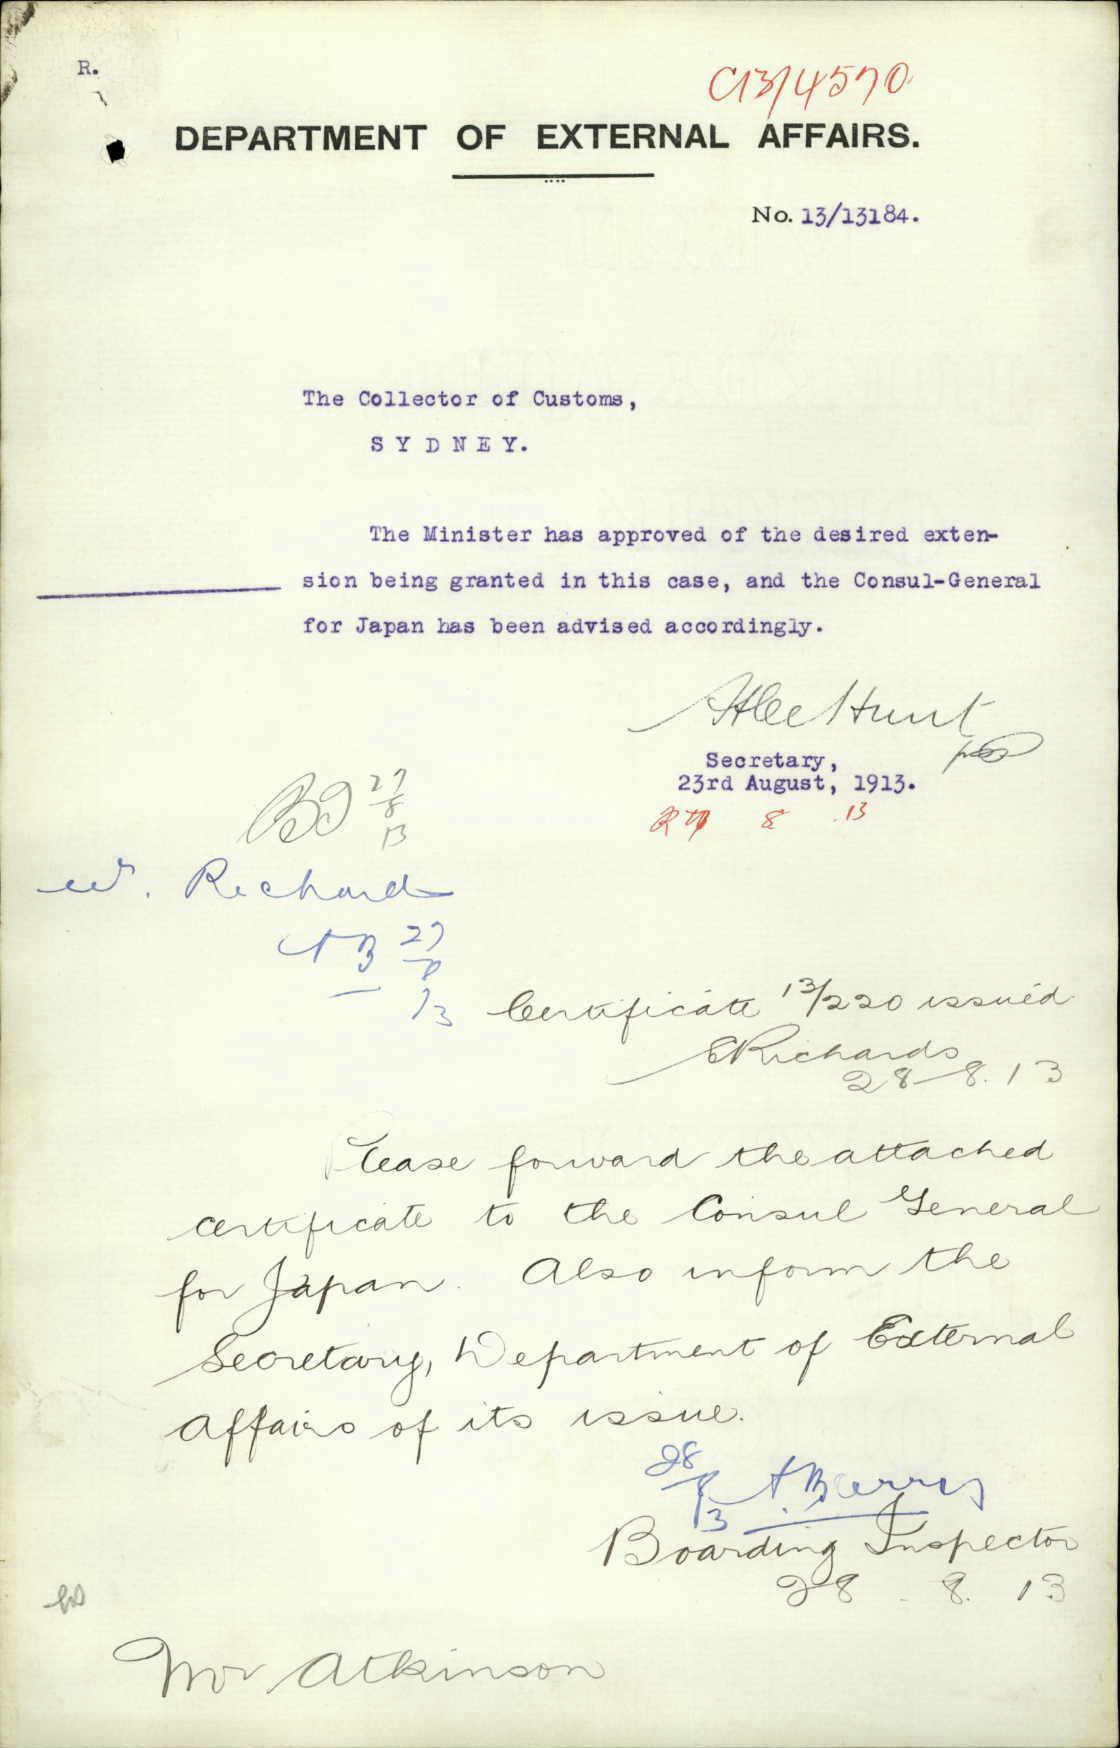 R.
C13/4570
DEPARTMENT OF EXTERNAL AFFAIRS.
No. 13/13184.
The Collector of Customs,
S Y D N E Y.
The Minister has approved of the desired exten-
sion being granted in this case, and the Consul-General
for Japan has been advised accordingly.
Atlee Hunt
Secretary,
23rd August, 1913.
8 13
BI 27/8/13
Mr. Richards
AB 27/8/13
Certificate 13/220 issued
ERichards
28-8.13
Please forward the attached
certificate to the Consul General
for Japan. Also inform the
Secretary, Department of External
Affairs of its issue.
28/8/13 A. Barres
Boarding Inspector
28. 8. 13
Mr Atkinson